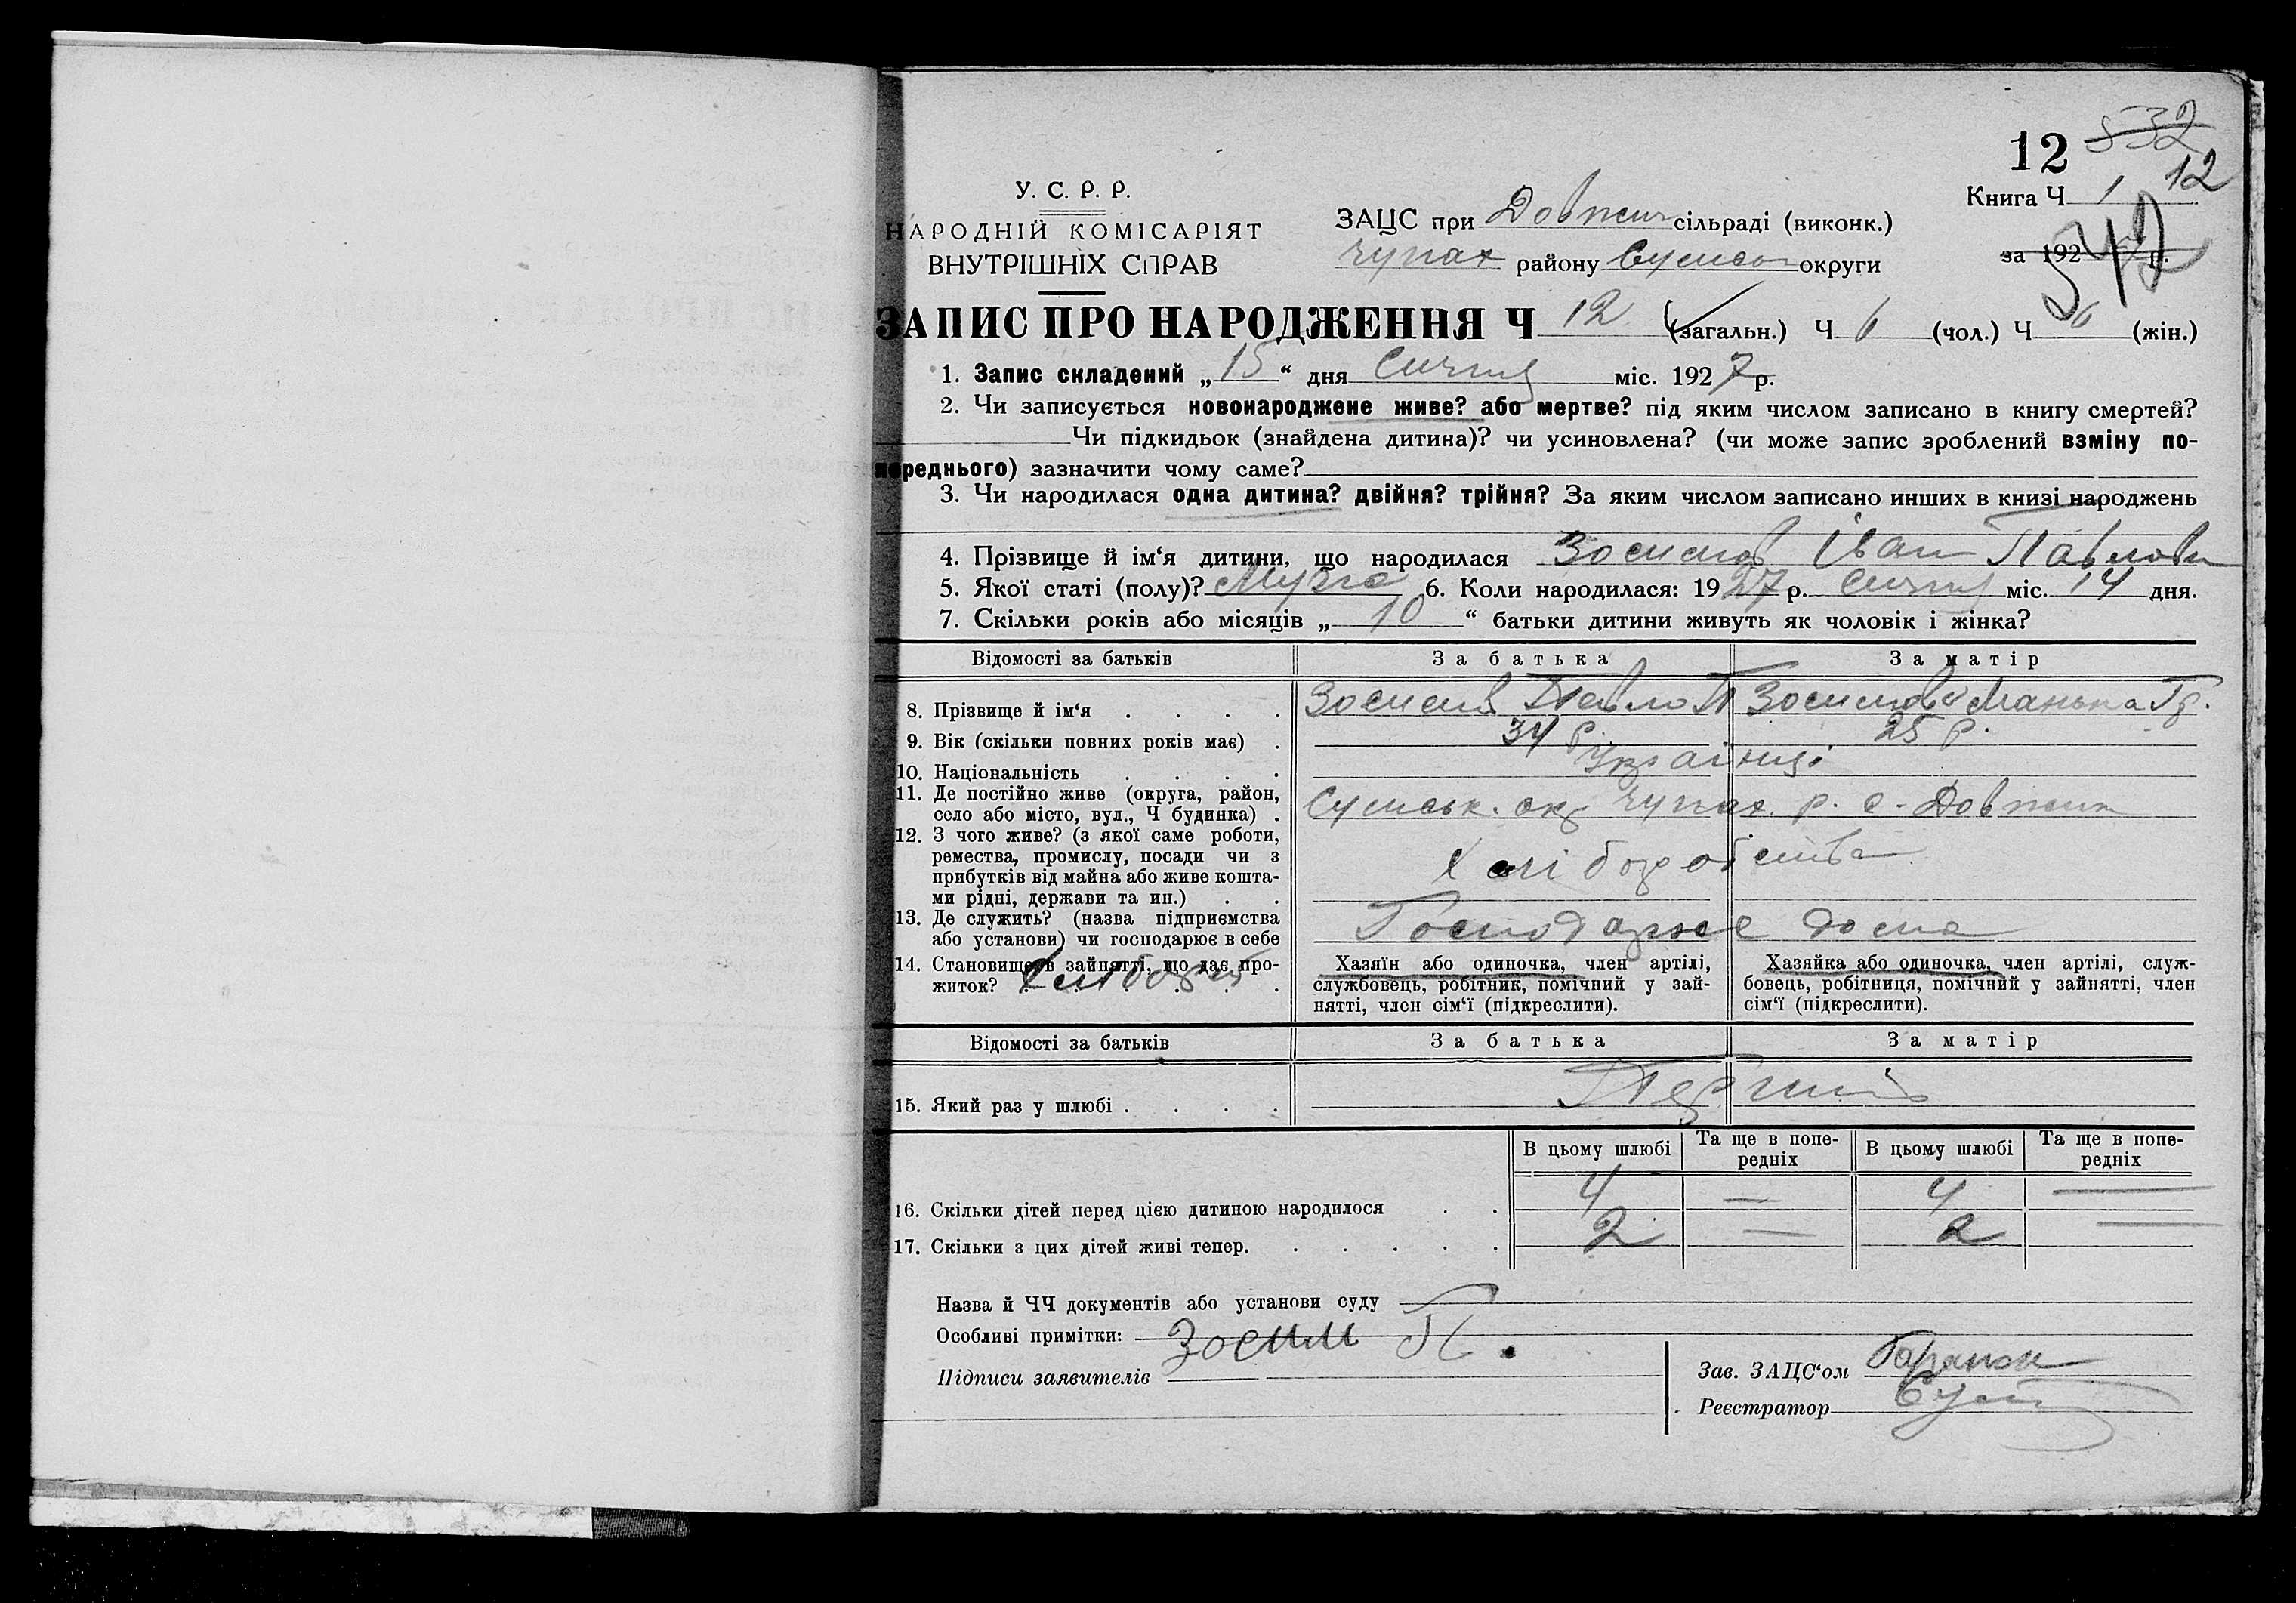 12 532
12
У. С. Р. Р.
НАРОДНІЙ КОМІСАРІЯТ
ВНУТРІШНІХ СПРАВ
Книга Ч 1
ЗАЦС при Довжик сільраді (виконк.)
чупах району Сумськ округи
за 192 р.
542
ЗАПИС ПРО НАРОДЖЕННЯ Ч 12 (загальн.) Ч 6 (чол.) Ч 6 (жін.)
1. Запис складений „ 15 “ дня Січня міс. 1927 р.
2. Чи записується новонароджене живе? або мертве? під яким числом записано в книгу смертей?
Чи підкидьок (знайдена дитина)? чи усиновлена? (чи може запис зроблений взміну по-
переднього) зазначити чому саме?
3. Чи народилася одна дитина? двійня? трійня? За яким числом записано инших в книзі народжень
4. Прізвище й ім‘я дитини, що народилася Зосимов Іван Павлови
5. Якої статі (полу)? Мужча 6. Коли народилася: 1927 р. Січня міс. 14 дня.
7. Скільки років або місяців „ 10 “ батьки дитини живуть як чоловік і жінка?
Відомості за батьків За батька За матір
8. Прізвище й ім‘я . . . . Зосимов Павло П Зосимова Манька Гр.
9. Вік (скільки повних років має) . 34 р. 25 р.
10. Національність . . . . Українці
11. Де постійно живе (округа, район,
село або місто, вул., Ч будинка) . Сумськ. окр чупах. р. с. Довжик
12. З чого живе? (з якої саме роботи,
ремества, промислу, посади чи з
прибутків від майна або живе кошта-
ми рідні, держави та ин.) . . Хліборобства
13. Де служить? (назва підприємства
або установи) чи господарює в себе Господарює дома
14. Становище в зайнятті, що дає про-
житок? Хлібороб
Хазяїн або одиночка, член артілі,
службовець, робітник, помічний у зай-
нятті, член сім‘ї (підкреслити).
Хазяйка або одиночка, член артілі, служ-
бовець, робітниця, помічний у зайнятті, член
сім‘ї (підкреслити).
Відомості за батьків За батька За матір
15. Який раз у шлюбі . . . . Перший
В цьому шлюбі Та ще в попе-
редніх В цьому шлюбі Та ще в попе-
редніх
16. Скільки дітей перед цією дитиною народилося . . 4 — 4 —
17. Скільки з цих дітей живі тепер. . . . . . 2 — 2 —
Назва й ЧЧ документів або установи суду
Особливі примітки:
Підписи заявителів Зосим П.
Зав. ЗАЦС‘ом
Реєстратор